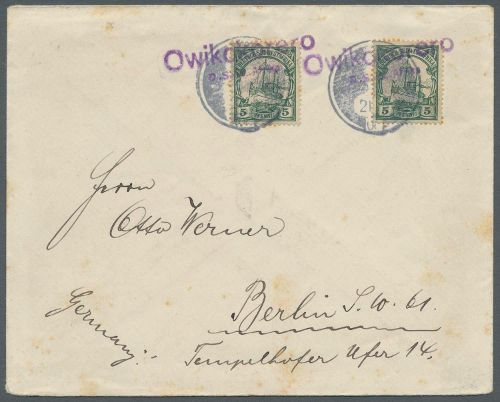 Owikokorero Owikokorero
5 5 5 5
Herrn
Otto Werner
Berlin S.W. 61.
Germany:-
Tempelhofer Ufer 14.